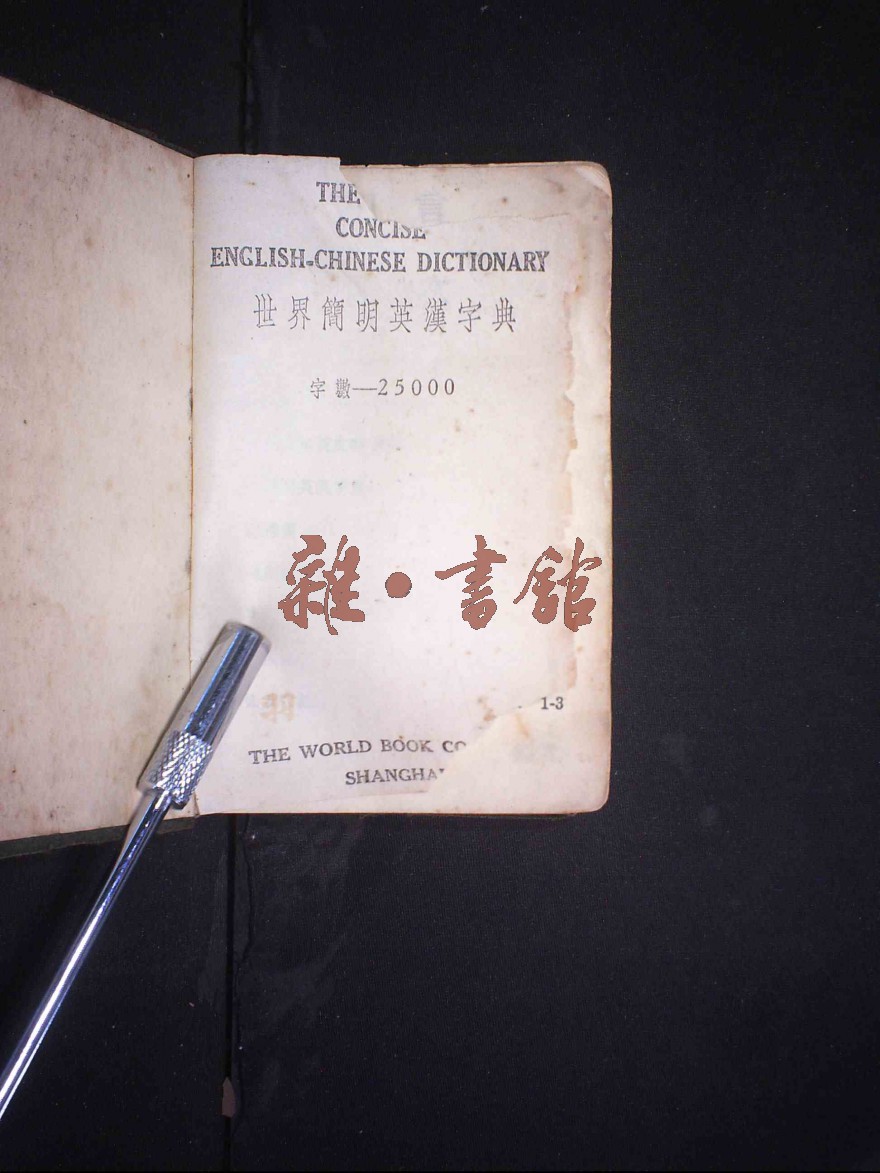 THE
CONCISE
ENGLISH-CHINESE DICTIONARY
世界簡明英漢字典
字數—25000
雜·書館
羽
1-3
THE WORLD BOOK CO
SHANGHA